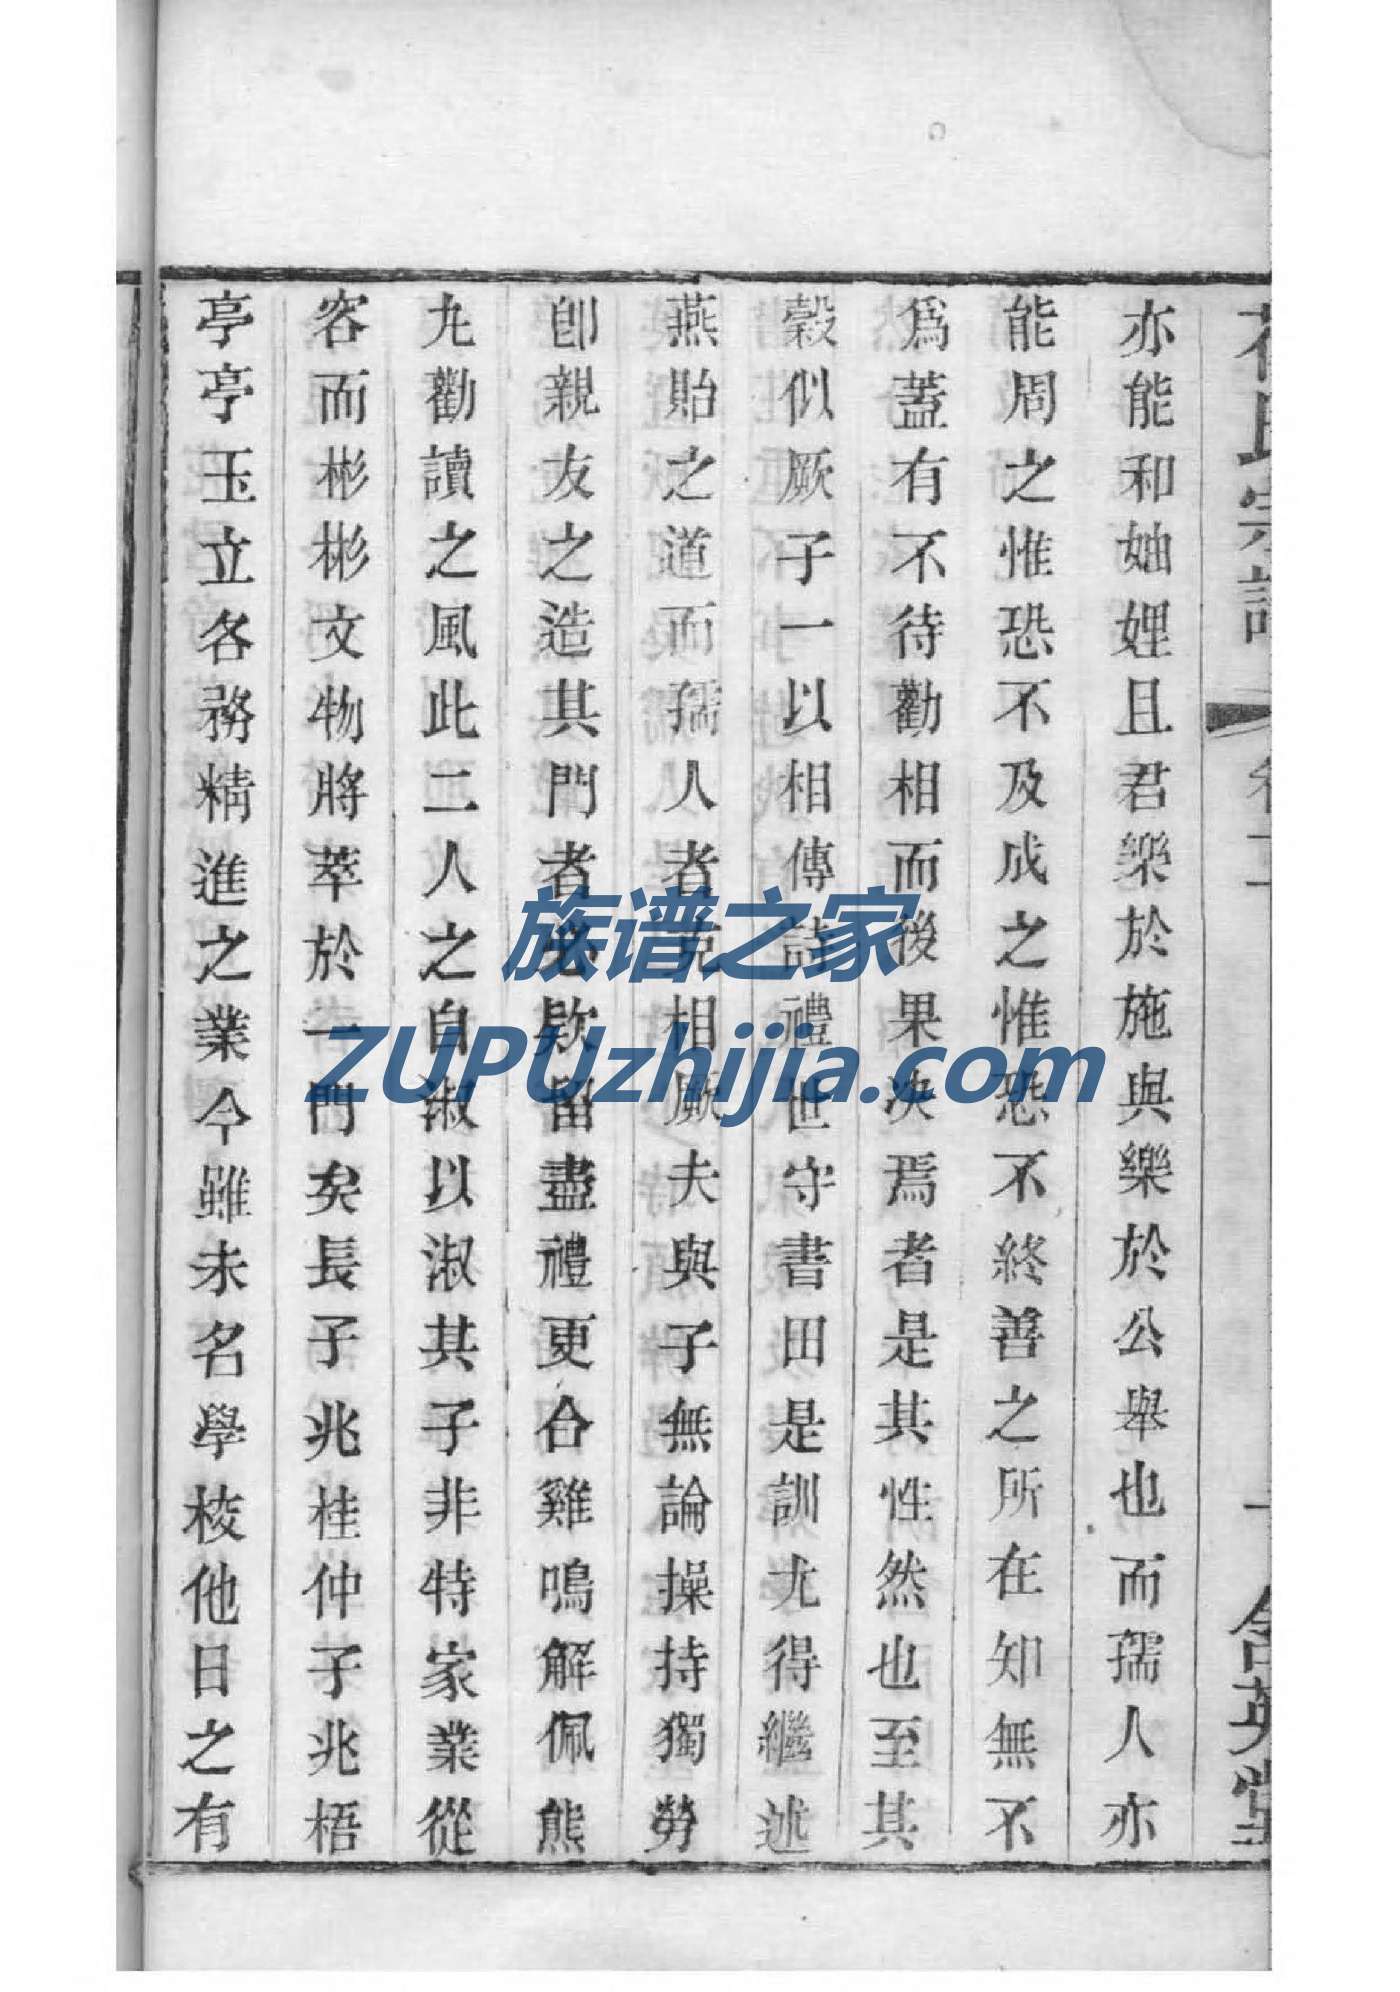 氏宗譜
含英堂
亦能和妯娌且君樂於施與樂於公舉也而孺人亦
能周之惟恐不及成之惟恐不終善之所在知無不
爲蓋有不待勸相而後果決焉者是其性然也至其
穀似厥子一以相傳詩禮世守書田是訓尤得繼述
燕貽之道而孺人者克相厥夫與子無論操持獨勞
卽親友之造其門者必欵留盡禮更合雞鳴解佩熊
九勸讀之風此二人之自淑以淑其子非特家業從
容而彬彬文物將萃於一門矣長子兆桂仲子兆梧
亭亭玉立各務精進之業今雖未名學校他日之有
族谱之家
ZUPUzhijia.com